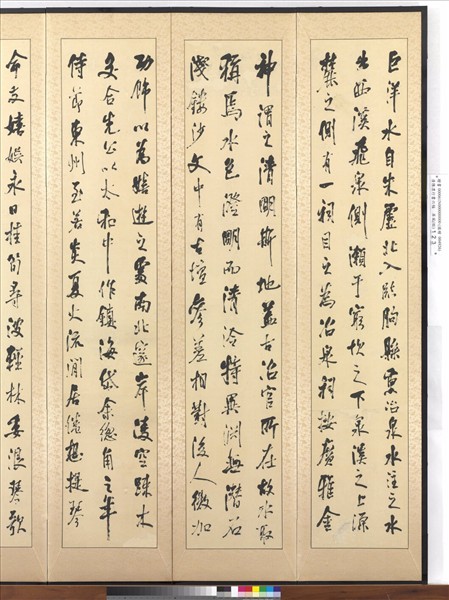 巨洋水自朱虛北入臨朐縣熏冶泉水注之水
出西溪飛泉側瀨于窮坎之下泉溪之上源
麓之側有一祠目之為冶泉祠按廣雅金
神謂之清明斯地蓋古冶官所在故水取
稱焉水色澄明而清泠特異淵無潛石
淺鏤沙文中有古壇參差相對後人微加
功飾以為嬉遊之處南北邃岸凌空疎木
交合先公以太和中作鎮海岱余總角之年
侍節東州至若炎夏火流閒居倦想提琴
命友嬉娛永日桂筍尋波輕林委浪琴歌